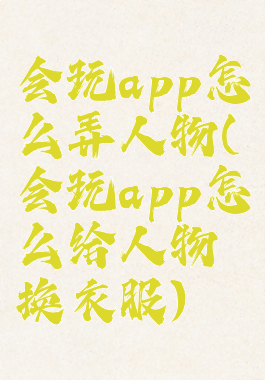 会玩app怎
么弄人物(
会玩app怎
么给人物
换衣服)